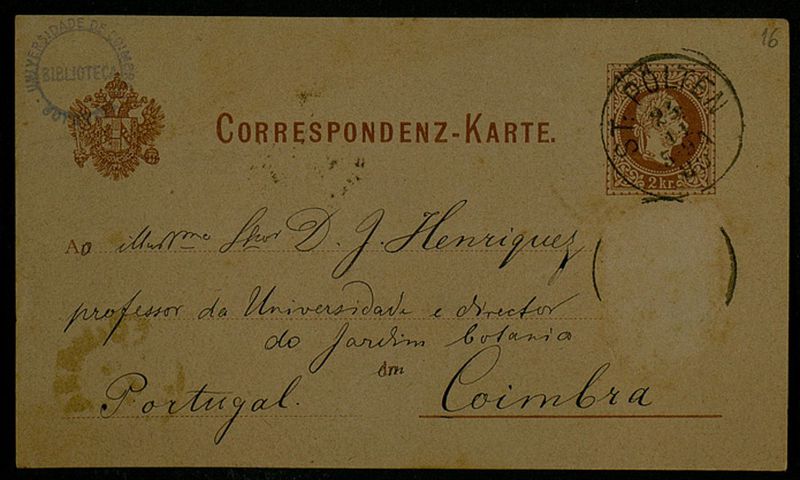 UNIVERSIDADE DE COIMBRA
BIBLIOTECA
16
CORRESPONDENZ-KARTE.
ST. PÖLTEN
2 kr.
Ao illustmo Snor D. J. Henriquez
professor da Universidade e director
do Jardim botanico
Portugal.
Coimbra